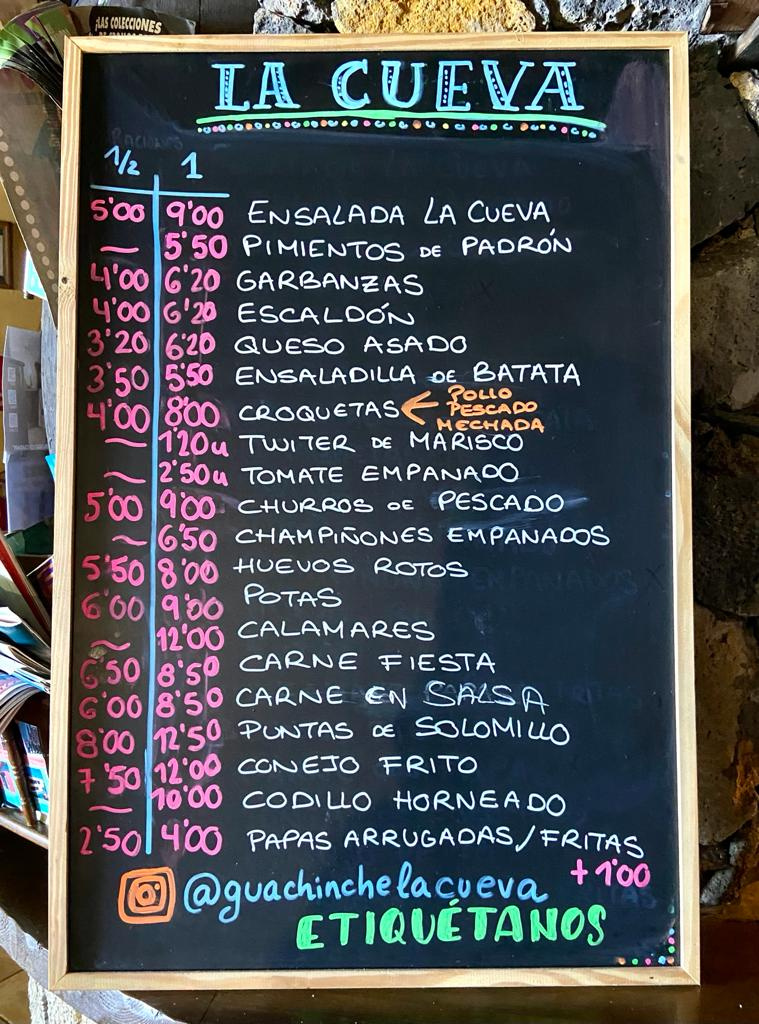 ¡LAS COLECCIONES
LA CUEVA
RACIONES
1/2 1
5'00 9'00 ENSALADA LA CUEVA
— 5'50 PIMIENTOS DE PADRÓN
4'00 6'20 GARBANZAS
4'00 6'20 ESCALDÓN
3'20 6'20 QUESO ASADO
3'50 5'50 ENSALADILLA DE BATATA
4'00 8'00 CROQUETAS ← POLLO
PESCADO
MECHADA
— 1'20u TWITER DE MARISCO
— 2'50u TOMATE EMPANADO
5'00 9'00 CHURROS DE PESCADO
— 6'50 CHAMPIÑONES EMPANADOS
5'50 8'00 HUEVOS ROTOS
6'00 9'00 POTAS
— 12'00 CALAMARES
6'50 8'50 CARNE FIESTA
6'00 8'50 CARNE EN SALSA
8'00 12'50 PUNTAS DE SOLOMILLO
7'50 12'00 CONEJO FRITO
— 10'00 CODILLO HORNEADO
2'50 4'00 PAPAS ARRUGADAS/FRITAS
+1'00
@guachinchelacueva
ETIQUÉTANOS